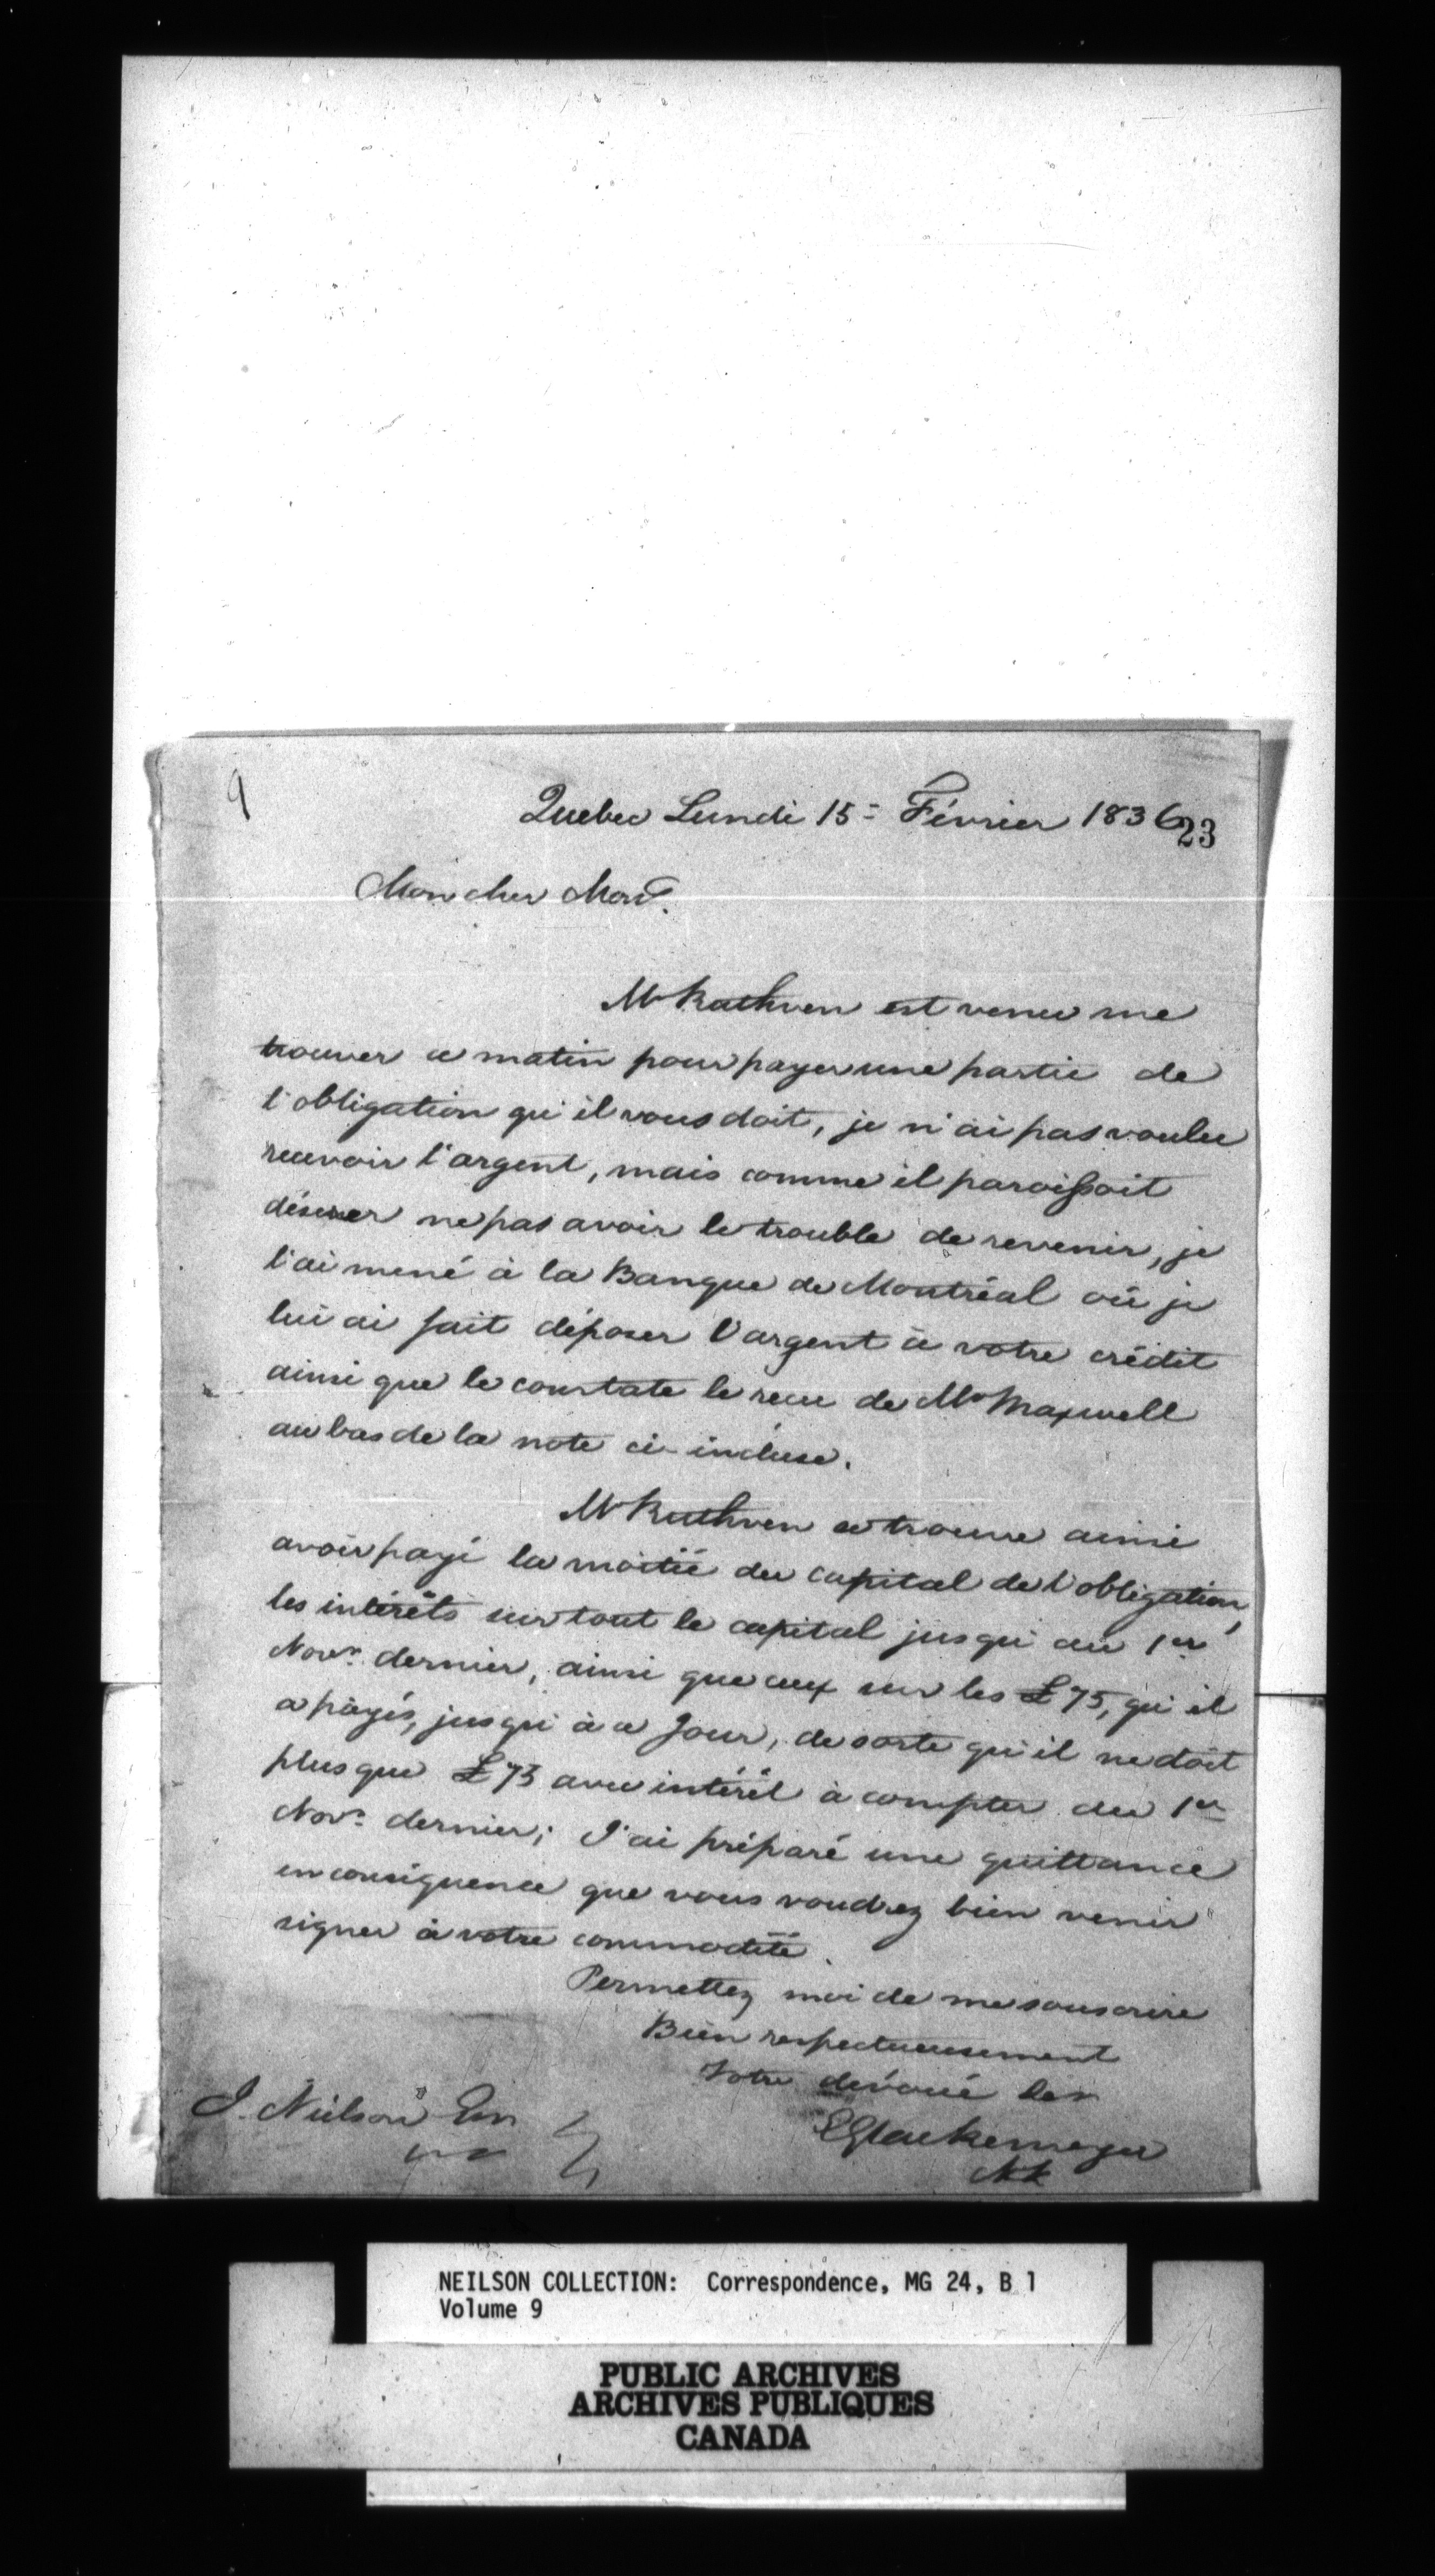 9
Quebec Lundi 15 - Février 1836
23
Mon cher Monsr.
Mr Ruthven est venu me
trouver ce matin pour payer une partie de
l'obligation qu'il vous doit, je n'ai pas voulu
recevoir l'argent, mais comme il paroissoit
désirer ne pas avoir le trouble de revenir, je
l'ai mené à la Banque de Montréal où je
lui ai fait déposer l'argent à votre crédit
ainsi que le constate le recu de Mr Maxwell
au bas de la note ci-incluse.
Mr Ruthven se trouve ainsi
avoir payé la moitié du capital de l'obligation,
les intérêts sur tout le capital jusqu'au 1er
Novr. dernier, ainsi que ceux sur les £75, qu'il
a payés, jusqu'à ce jour, de sorte qu'il ne doit
plus que £75 avec intérêt à compter du 1er
Novr. dernier; J'ai préparé une quittance
en conséquence que vous voudrez bien venir
signer à votre commodité.
Permettez moi de me souscrire
Bien respectueusement
Votre dévoué Ser
J. Neilson Esr
EGlackemeyer
NEILSON COLLECTION: Correspondence, MG 24, B 1
Volume 9
PUBLIC ARCHIVES
ARCHIVES PUBLIQUES
CANADA